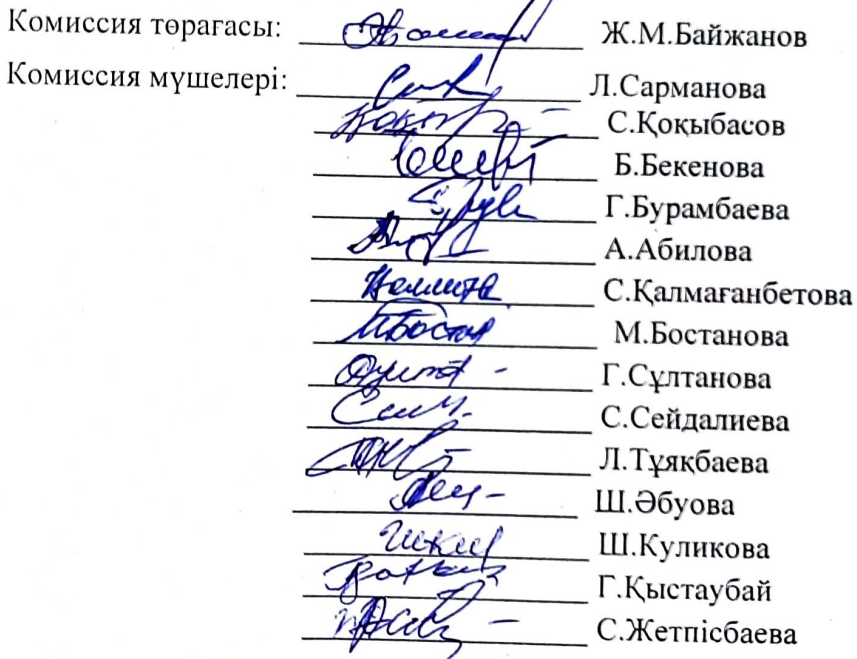 Комиссия төрағасы: Ж.М.Байжанов
Комиссия мүшелері: Л.Сарманова
С.Қоқыбасов
Б.Бекенова
Г.Бурамбаева
А.Абилова
С.Қалмағанбетова
М.Бостанова
Г.Сұлтанова
С.Сейдалиева
Л.Тұяқбаева
Ш.Әбуова
Ш.Куликова
Г.Қыстаубай
С.Жетпісбаева